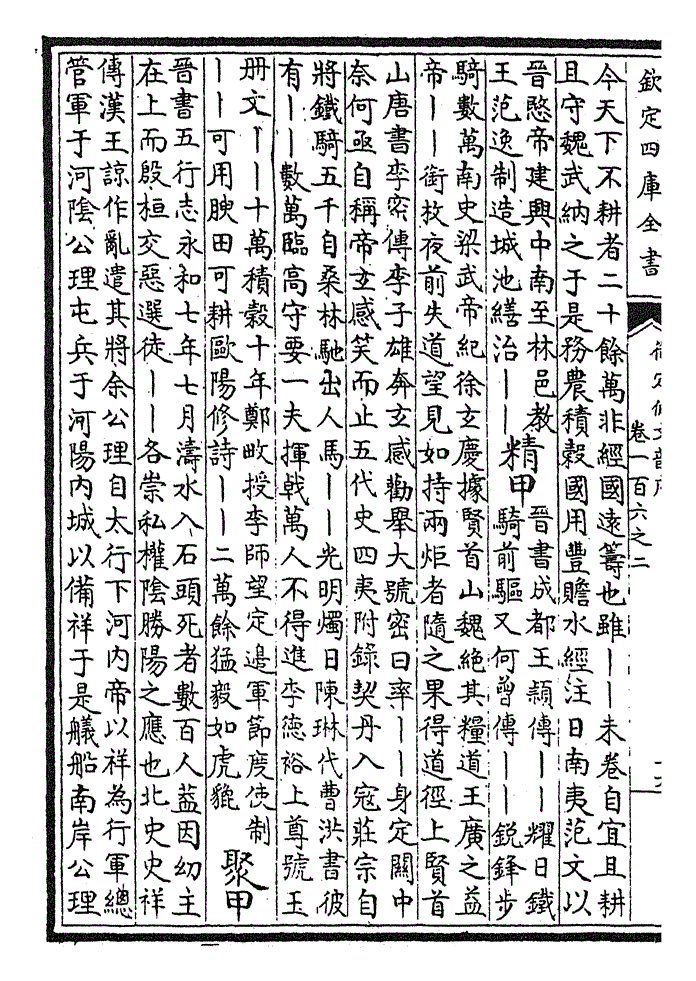 欽定四庫全書
卷一百六之二
今天下不耕者二十餘萬非經國遠籌也雖——未卷自宜且耕
且守魏武納之于是務農積穀國用豐贍水經注日南夷范文以
晉愍帝建興中南至林邑教
王范逸制造城池繕治——
精甲
晉書成都王頴傳——耀日鐵
騎前驅又何曾傳——銳鋒步
騎數萬南史梁武帝紀徐玄慶據賢首山魏絶其糧道王廣之益
帝——銜枚夜前失道望見如持兩炬者隨之果得道徑上賢首
山唐書李密傳李子雄奔玄感勸舉大號密曰率——身定關中
奈何亟自稱帝玄感笑而止五代史四夷附錄契丹入寇莊宗自
將鐵騎五千自桑林馳出人馬——光明燭日陳琳代曹洪書彼
有——數萬臨高守要一夫揮戟萬人不得進李德裕上尊號玉
册文——十萬積穀十年鄭畋授李師望定邊軍節度使制
——可用腴田可耕歐陽修詩——二萬餘猛毅如虎貔
聚甲
晉書五行志永和七年七月濤水入石頭死者數百人葢因幼主
在上而殷桓交惡選徒——各崇私權陰勝陽之應也北史史祥
傳漢王諒作亂遣其將余公理自太行下河内帝以祥為行軍總
管軍于河陰公理屯兵于河陽内城以備祥于是艤船南岸公理